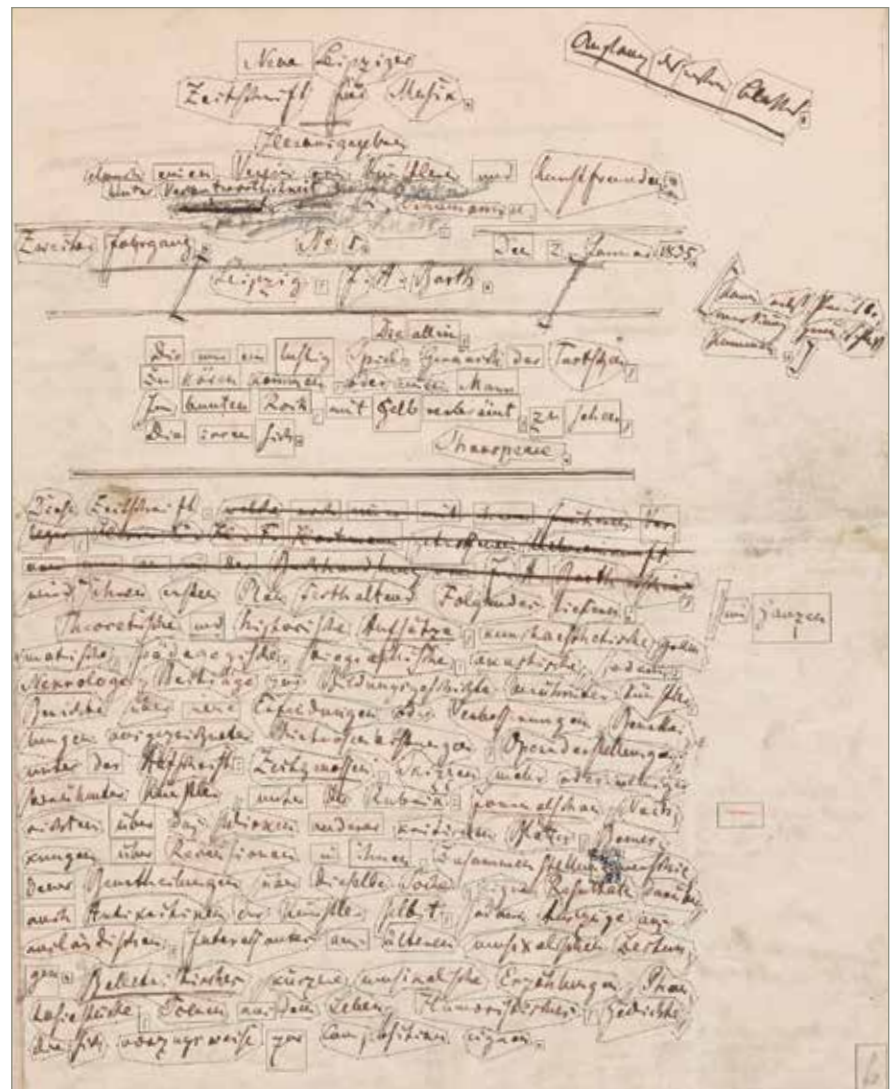 Neue Leipziger
Zeitschrift für Musik.
Anfang der ersten Columne.
Herausgegeben
durch einen Verein von Künstlern und Kunstfreunden.
unter Verantwortlichkeit
Zweiter Jahrgang. No 1. Den 2. Januar 1835.
Leipzig, J. A. Barth.
Die allein,
Die nur ein lustig Spiel, Geräusch der Tartschen,
Zu hören kommen, oder einen Mann
Im bunten Rock, mit Gelb verbrämt, zu sehen,
Die irren sich.
Shakspeare.
Diese Zeitschrift, welche nach einer mit ihrem früheren Ver-
leger, Herrn C. H. F. Hartmann, getroffenen Uebereinkunft
von nun an in der Buchhandlung von J. A. Barth
wird ihren ersten Plan festhaltend Folgendes liefern.
im Ganzen
Theoretische und historische Aufsätze, kunstaesthetische, gram-
matische, pädagogische, biographische, akustische,
Nekrologe, Beiträge zur Bildungsgeschichte berühmter Künstler,
Berichte über neue Erfindungen oder Verbesserungen, Beurthei-
lungen ausgezeichneter Virtuosenleistungen, Operndarstellungen;
unter der Aufschrift: Zeitgenossen, Skizzen mehr oder weniger
berühmter Künstler, unter der Rubrik: Journalschau, Nach-
richten über das Wirken anderer kritischen Blätter, Bemer-
kungen über Recensionen in ihnen, Zusammenstellung verschie-
dener Beurtheilungen über dieselbe Sache, eigne Resultate darüber,
auch Antikritiken der Künstler selbst, sodann Auszüge aus
ausländischen, Interessantes aus älteren musikalischen Zeitun-
gen. Belletristisches, kürzere musikalische Erzählungen, Phan-
tasiestücke, Scenen aus dem Leben, Humoristisches, Gedichte,
die sich vorzugsweise zur Composition eignen.